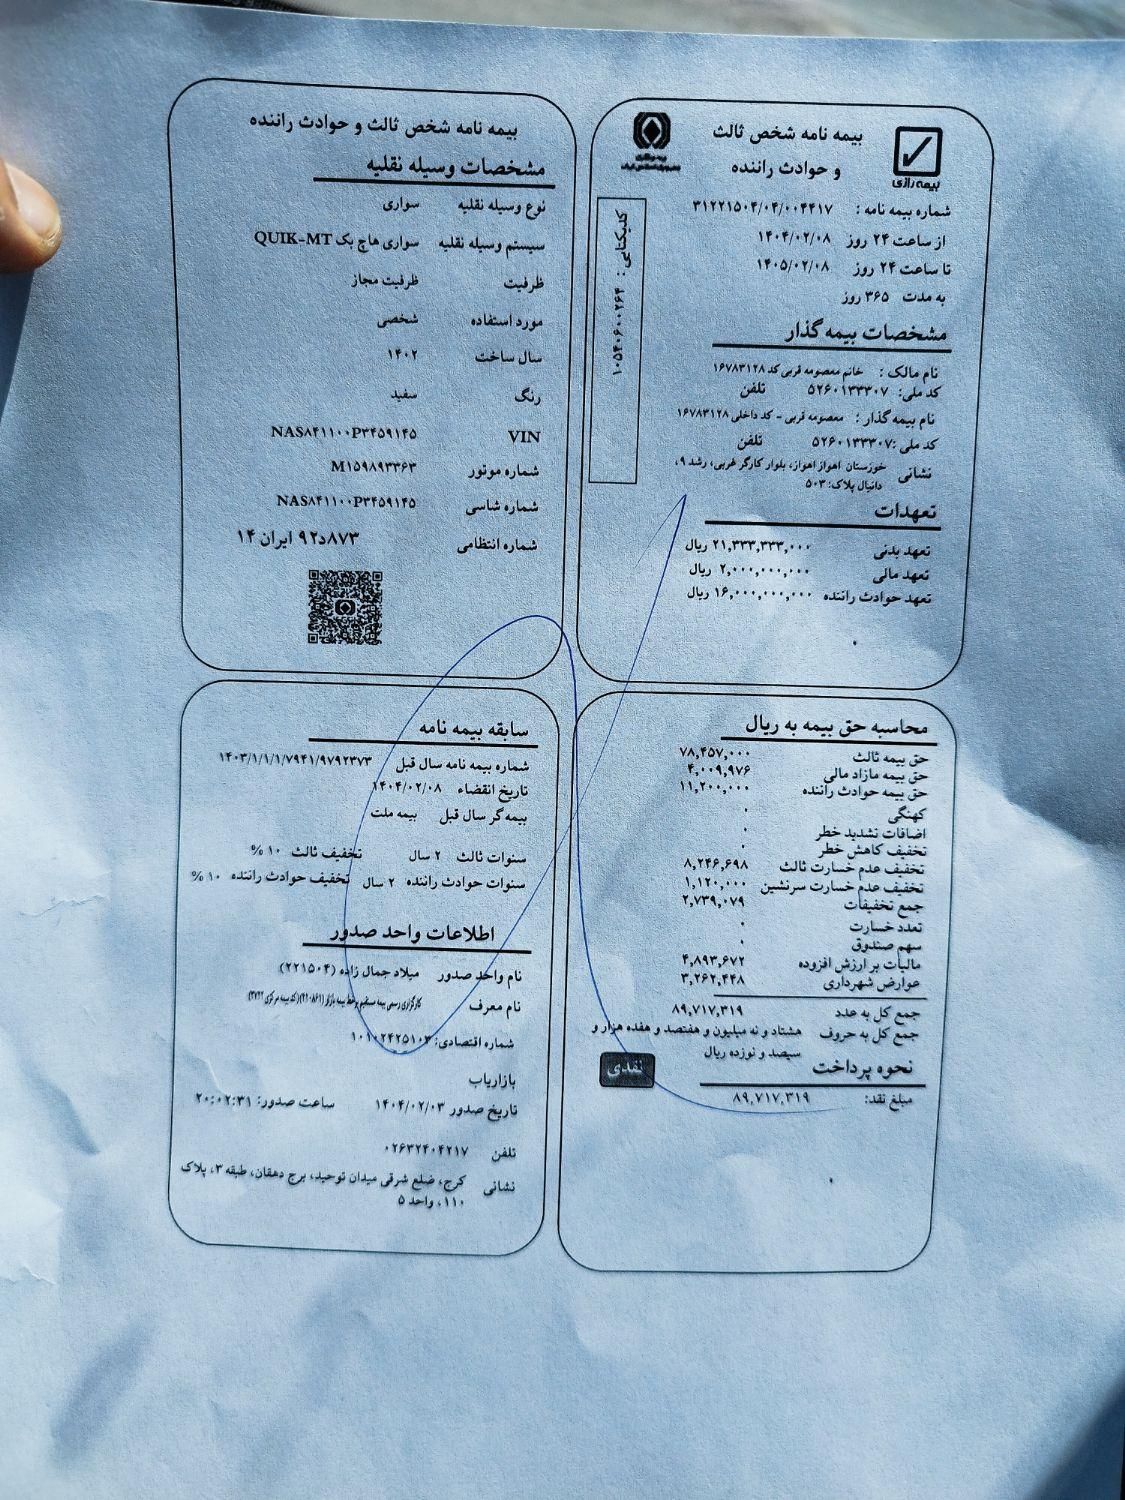 بیمه نامه شخص ثالث
و حوادث راننده
بیمه رازی
شماره بیمه نامه : ۳۱۲۲۱۵۰۴/۰۴/۰۰۴۴۱۷
از ساعت ۲۴ روز ۱۴۰۴/۰۲/۰۸
تا ساعت ۲۴ روز ۱۴۰۵/۰۲/۰۸
به مدت ۳۶۵ روز
کدیکتایی : ۱۰۵۴۰۶۰۰۲۶۴
مشخصات بیمه گذار
نام مالک : خانم معصومه قربی کد ۱۶۷۸۳۱۲۸
کد ملی: ۵۲۶۰۱۳۳۳۰۷ تلفن
نام بیمه گذار : معصومه قربی - کد داخلی ۱۶۷۸۳۱۲۸
کد ملی :۵۲۶۰۱۳۳۳۰۷ تلفن
نشانی خوزستان اهواز اهواز، بلوار کارگر غربی، رشد ۹،
دانیال پلاک: ۵۰۳
تعهدات
تعهد بدنی ۲۱,۳۳۳,۳۳۳,۰۰۰ ریال
تعهد مالی ۲,۰۰۰,۰۰۰,۰۰۰ ریال
تعهد حوادث راننده ۱۶,۰۰۰,۰۰۰,۰۰۰ ریال
بیمه نامه شخص ثالث و حوادث راننده
مشخصات وسیله نقلیه
نوع وسیله نقلیه سواری
سیستم وسیله نقلیه سواری هاچ بک QUIK-MT
ظرفیت ظرفیت مجاز
مورد استفاده شخصی
سال ساخت ۱۴۰۲
رنگ سفید
VIN NAS۸۴۱۱۰۰P۳۴۵۹۱۴۵
شماره موتور M۱۵۹۸۹۳۳۶۳
شماره شاسی NAS۸۴۱۱۰۰P۳۴۵۹۱۴۵
شماره انتظامی ۸۷۳د۹۲ ایران ۱۴
محاسبه حق بیمه به ریال
حق بیمه ثالث ۷۸,۴۵۷,۰۰۰
حق بیمه مازاد مالی ۴,۰۰۹,۹۷۶
حق بیمه حوادث راننده ۱۱,۲۰۰,۰۰۰
کهنگی ۰
اضافات تشدید خطر ۰
تخفیف کاهش خطر ۰
تخفیف عدم خسارت ثالث ۸,۲۴۶,۶۹۸
تخفیف عدم خسارت سرنشین ۱,۱۲۰,۰۰۰
جمع تخفیفات ۲,۷۳۹,۰۷۹
تعدد خسارت ۰
سهم صندوق ۰
مالیات بر ارزش افزوده ۴,۸۹۳,۶۷۲
عوارض شهرداری ۳,۲۶۲,۴۴۸
جمع کل به عدد ۸۹,۷۱۷,۳۱۹
جمع کل به حروف هشتاد و نه میلیون و هفتصد و هفده هزار و
سیصد و نوزده ریال
نحوه پرداخت نقدی
مبلغ نقد: ۸۹,۷۱۷,۳۱۹
سابقه بیمه نامه
شماره بیمه نامه سال قبل ۱۴۰۳/۱/۱/۱/۷۹۴۱/۹۷۹۲۳۷۳
تاریخ انقضاء ۱۴۰۴/۰۲/۰۸
بیمه گر سال قبل بیمه ملت
سنوات ثالث ۲ سال تخفیف ثالث ۱۰ %
سنوات حوادث راننده ۲ سال تخفیف حوادث راننده ۱۰ %
اطلاعات واحد صدور
نام واحد صدور میلاد جمال زاده (۲۲۱۵۰۴)
نام معرف کارگزاری رسمی بیمه مستقیم برخط بیمه بازار
شماره اقتصادی: ۱۰۱۰۲۴۲۵۱۰۳
بازاریاب
تاریخ صدور ۱۴۰۴/۰۲/۰۳ ساعت صدور: ۲۰:۰۲:۳۱
تلفن ۰۲۶۳۲۴۰۴۲۱۷
نشانی کرج، ضلع شرقی میدان توحید، برج دهقان، طبقه ۳، پلاک
۱۱۰، واحد ۵